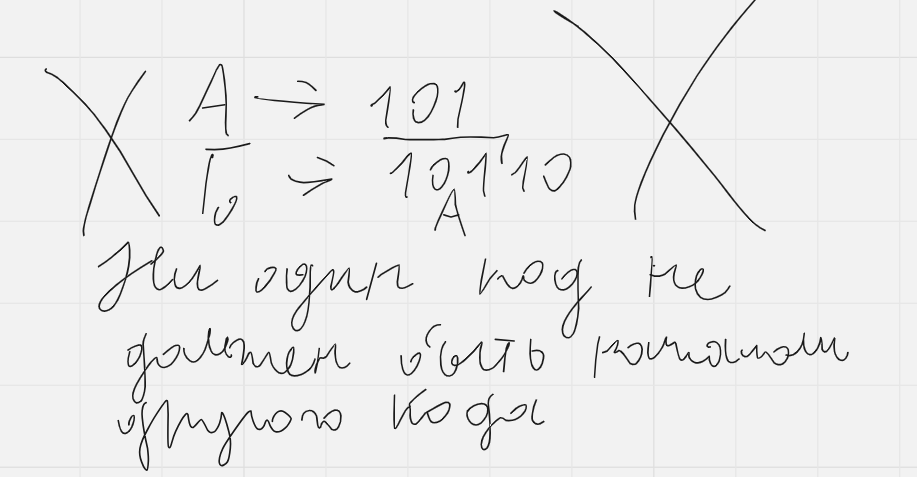 А → 101
Б → 101'10
А
Ни один код не
должен быть началом
другого кода